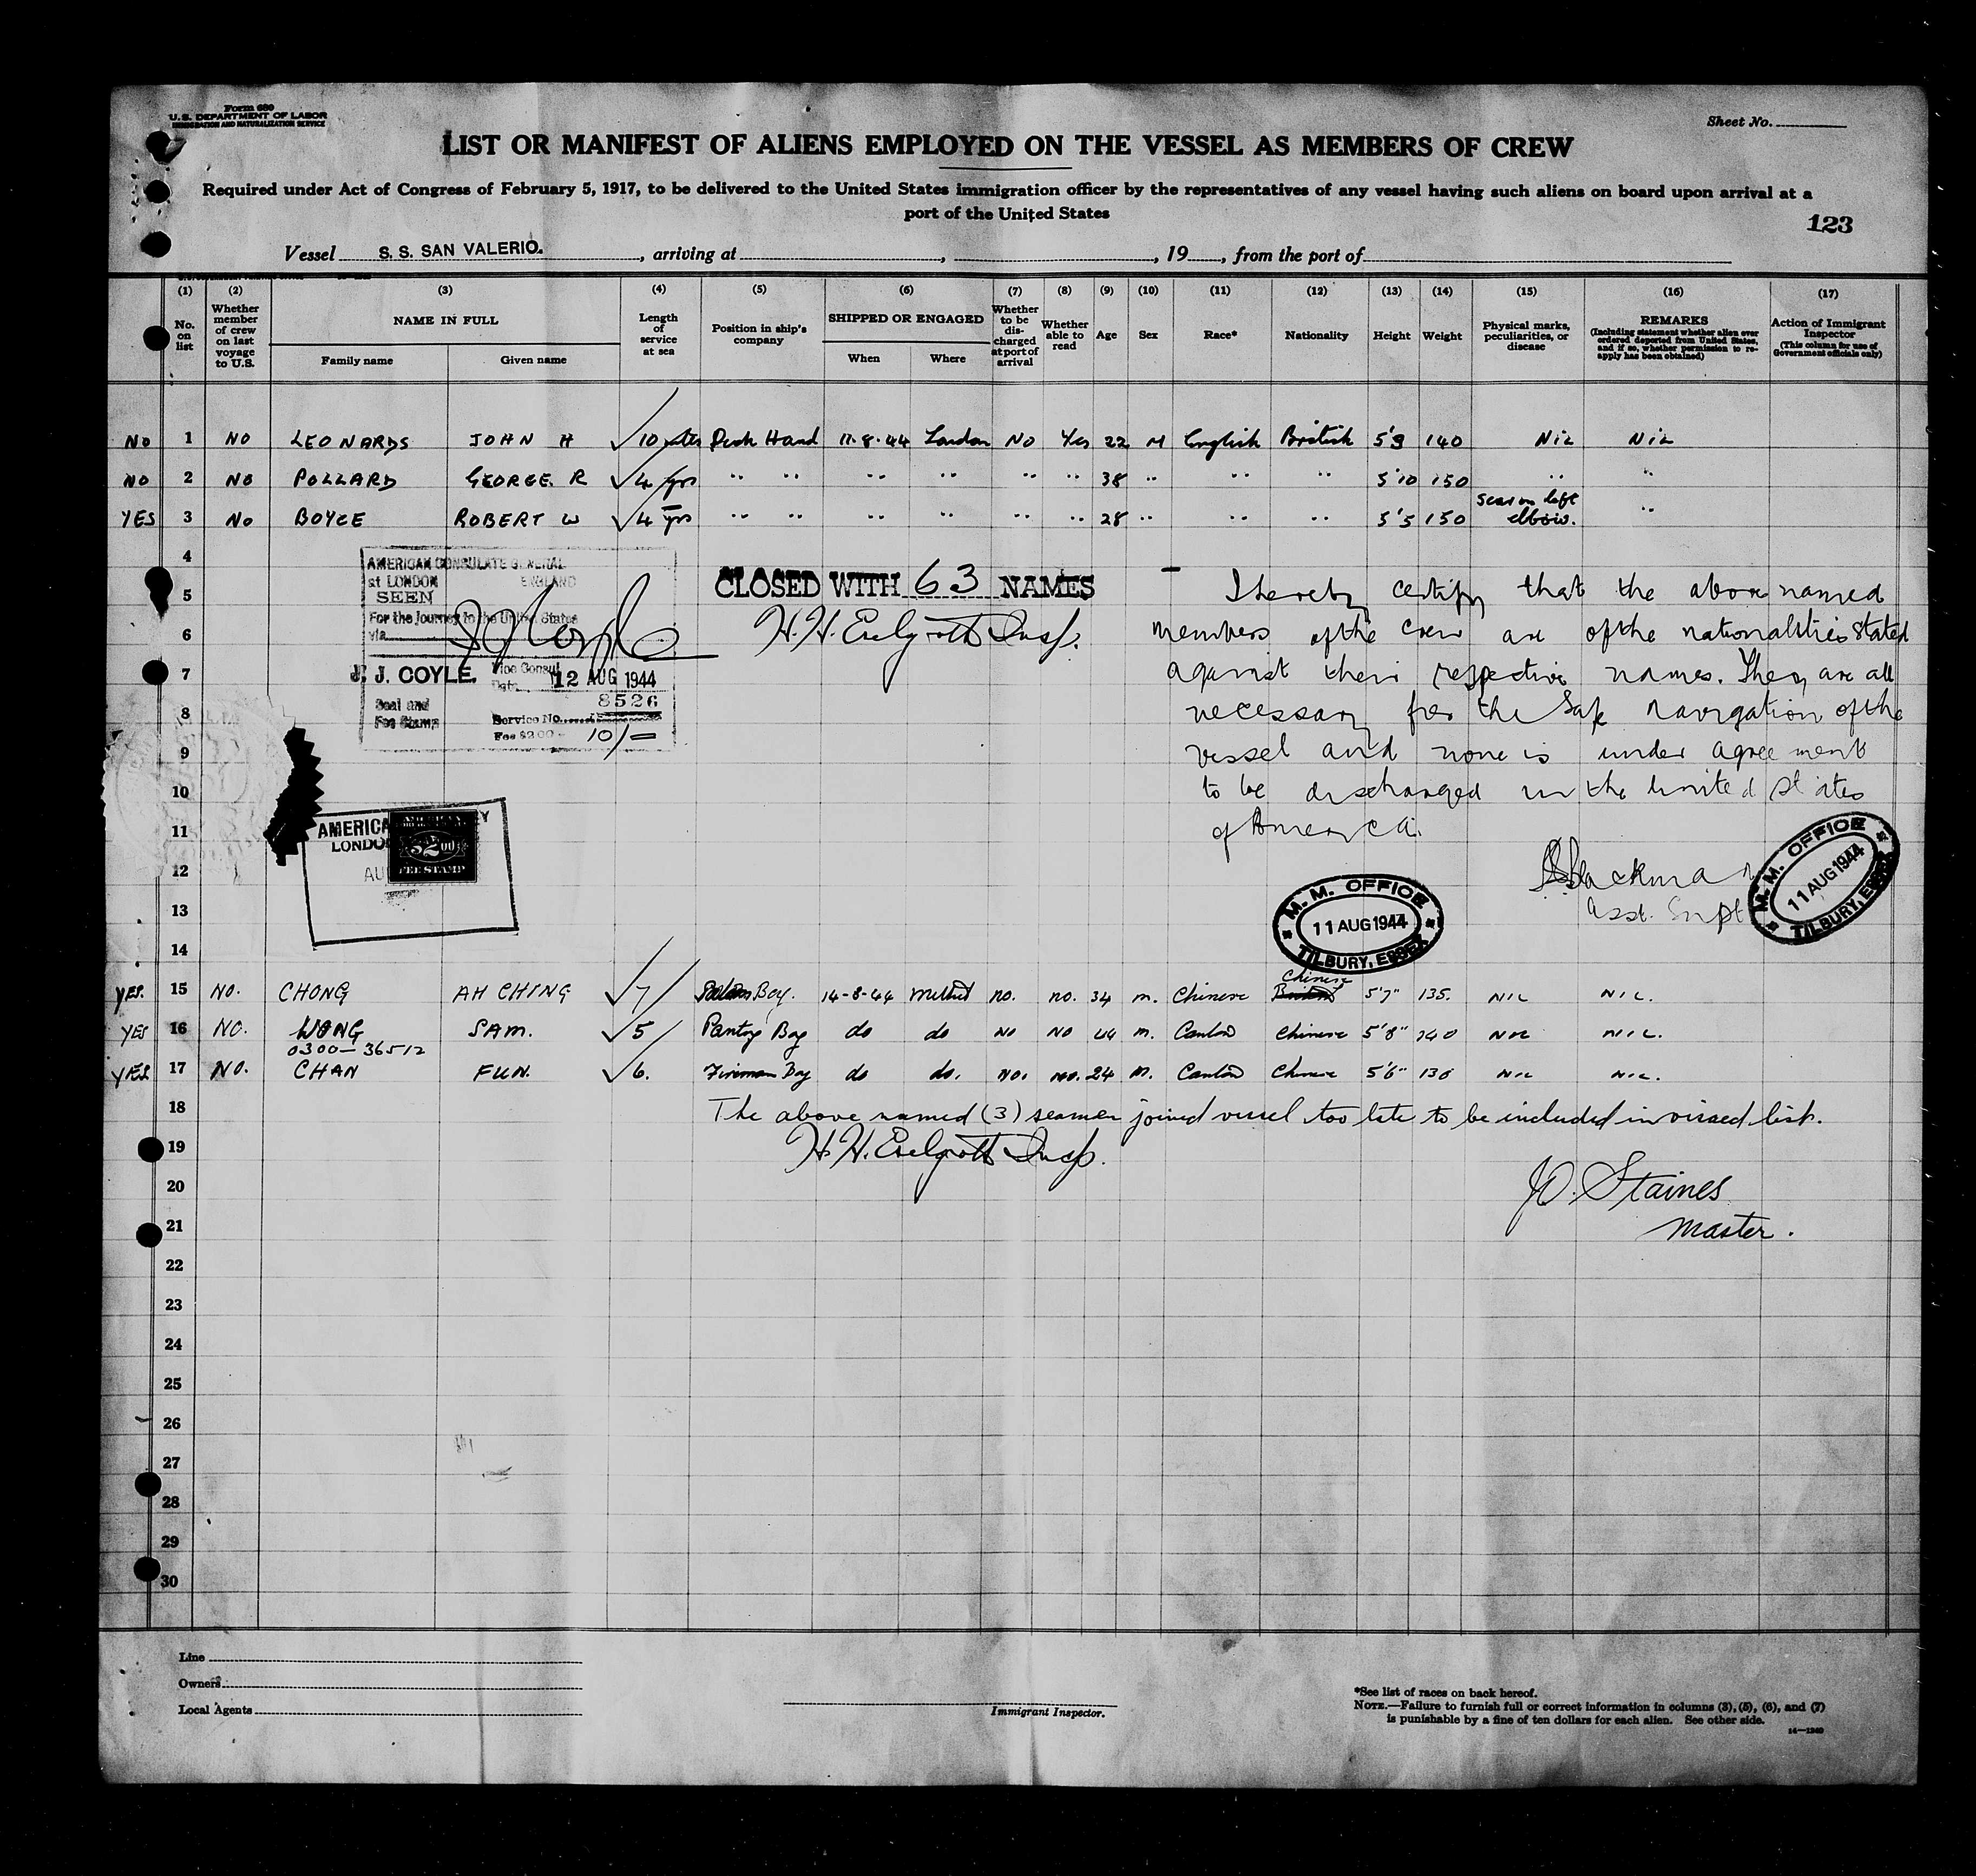 Form 680
U. S. DEPARTMENT OF LABOR
IMMIGRATION AND NATURALIZATION SERVICE
Sheet No.
LIST OR MANIFEST OF ALIENS EMPLOYED ON THE VESSEL AS MEMBERS OF CREW
Required under Act of Congress of February 5, 1917, to be delivered to the United States immigration officer by the representatives of any vessel having such aliens on board upon arrival at a
port of the United States
123
Vessel S. S. SAN VALERIO. , arriving at , , 19 , from the port of
(1) (2) (3) (4) (5) (6) (7) (8) (9) (10) (11) (12) (13) (14) (15) (16) (17)
No. on list
Whether member of crew on last voyage to U.S.
NAME IN FULL
Family name Given name
Length of service at sea
Position in ship's company
SHIPPED OR ENGAGED
When Where
Whether to be discharged at port of arrival
Whether able to read
Age
Sex
Race*
Nationality
Height
Weight
Physical marks, peculiarities, or disease
REMARKS
(Including statement whether alien ever ordered deported from United States, and if so, whether permission to reapply has been obtained)
Action of Immigrant Inspector
(This column for use of Government officials only)
NO 1 NO LEONARDS JOHN H 10 mths Deck Hand 11.8.44 London NO Yes 22 M English British 5'9 140 Nil Nil
NO 2 NO POLLARD GEORGE R 4 yrs " " " " " " 38 " " " 5'10 150 " "
YES 3 NO BOYCE ROBERT W 4 yrs " " " " " " 28 " " " 5'5 150 scar on left elbow. "
4
5
6
7
8
9
10
11
12
13
14
AMERICAN CONSULATE GENERAL
at LONDON ENGLAND
SEEN
For the journey to the United States
via
J. J. COYLE. Vice Consul
Date 12 AUG 1944
Seal and
Fee Stamp
8526
Service No.
Fee $2.00 = 10/-
CLOSED WITH 63 NAMES
I hereby certify that the above named
members of the crew are of the nationalities stated
against their respective names. They are all
necessary for the safe navigation of the
vessel and none is under agreement
to be discharged in the United States
of America.
Asst. Supt
M. M. OFFICE
11 AUG 1944
TILBURY, ESSEX
M. M. OFFICE
11 AUG 1944
TILBURY, ESSEX
LONDON
AU
$2.00
FEE STAMP
YES. 15 NO. CHONG AH CHING 7 Saloon Boy. 14-8-44 no. no. 34 m. Chinese Chinese 5'7" 135. NIL NIL.
YES 16 NO. WONG SAM. 5 Pantry Boy do do NO NO 44 m. Canton Chinese 5'8" 140 NIL NIL.
0300-36512
YES 17 NO. CHAN FUN. 6. Fireman Boy do do. NO. NO. 24 m. Canton Chinese 5'6" 130 NIL NIL.
18 The above named (3) seamen joined vessel too late to be included in visaed list.
19
20 Staines
21 Master.
22
23
24
25
26
27
28
29
30
Line
Owners
Local Agents
Immigrant Inspector.
*See list of races on back hereof.
NOTE.—Failure to furnish full or correct information in columns (3), (5), (6), and (7)
is punishable by a fine of ten dollars for each alien. See other side.
14—1240